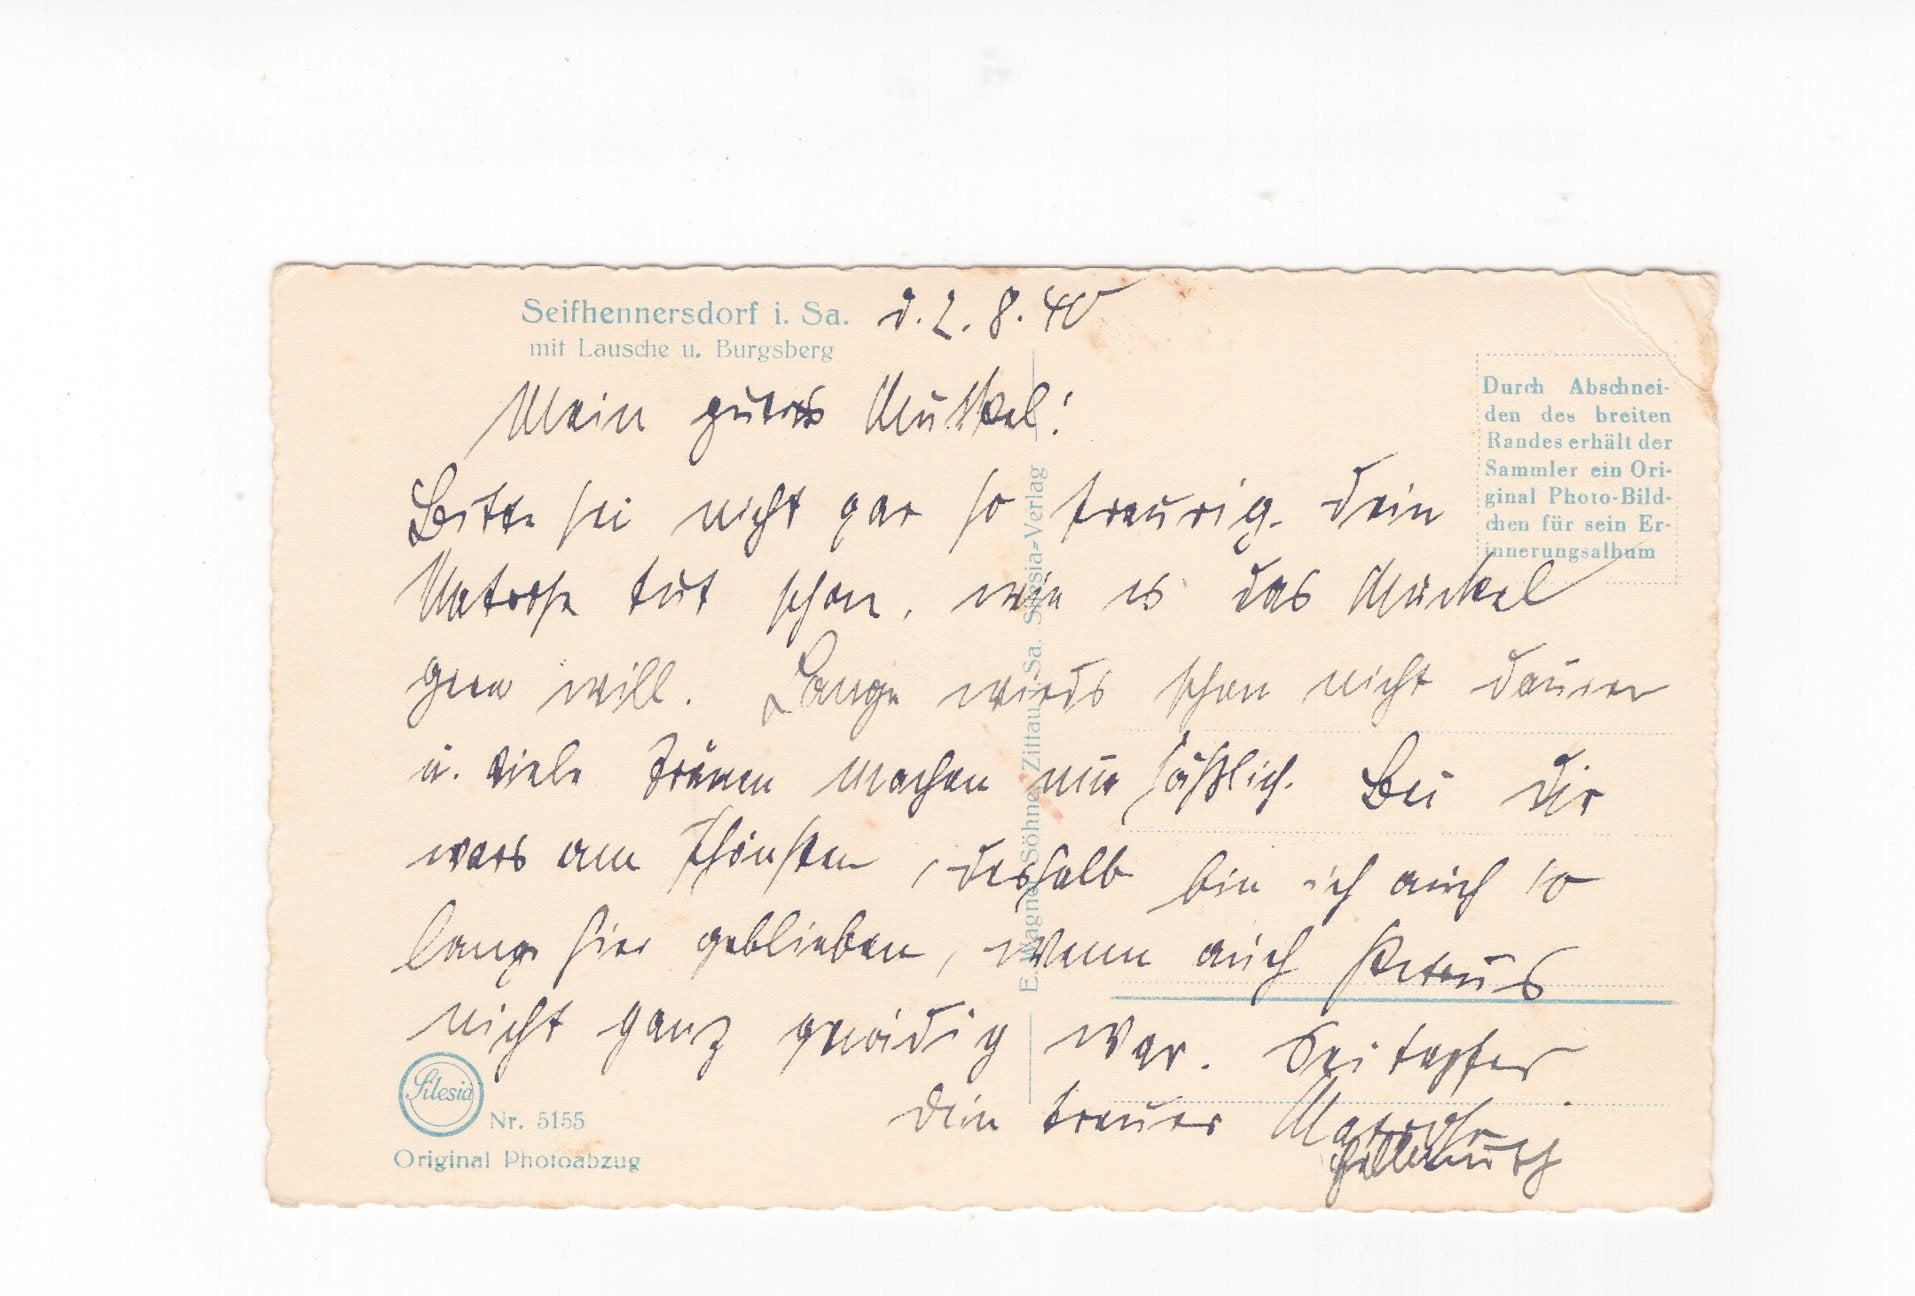 Seifhennersdorf i. Sa.
mit Lausche u. Burgsberg
d. 2. 8. 40
Mein gutes Muckel!
Bitte sei nicht gar so traurig. Dein
Matrose tut schon, wie es das Muckel
gern will. Lange wirds schon nicht dauern
u. viele Tränen machen nur häßlich. Bei Dir
wars am schönsten, deshalb bin ich auch so
lange hier geblieben, wenn auch Petrus
nicht ganz gnädig war. Sei tapfer
Dein treuer Matrose
Hellmuth
Durch Abschnei-
den des breiten
Randes erhält der
Sammler ein Ori-
ginal Photo-Bild-
chen für sein Er-
innerungsalbum
E. Wagner Söhne, Zittau i. Sa. Silesia-Verlag
Silesia
Nr. 5155
Original Photoabzug